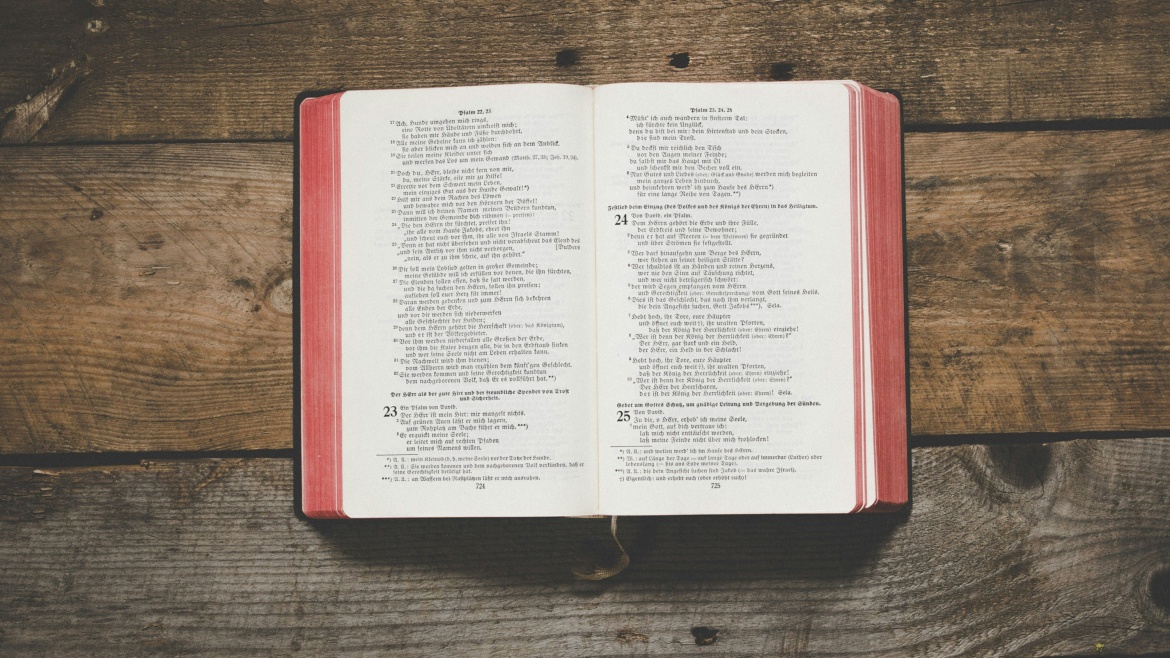 Psalm 22, 23
17 Ach, Hunde umgeben mich rings,
eine Rotte von Übeltätern umkreist mich;
sie haben mir Hände und Füße durchbohrt.
18 Alle meine Gebeine kann ich zählen;
sie aber blicken mich an und weiden sich an dem Anblick.
19 Sie teilen meine Kleider unter sich
und werfen das Los um mein Gewand (Matth. 27,35; Joh. 19,24).
20 Doch du, HErr, bleibe nicht fern von mir,
du, meine Stärke, eile mir zu Hilfe!
21 Errette vor dem Schwert mein Leben,
mein einziges Gut aus der Hunde Gewalt!*)
22 Hilf mir aus dem Rachen des Löwen
und bewahre mich vor den Hörnern der Büffel!
23 Dann will ich deinen Namen meinen Brüdern kundtun,
inmitten der Gemeinde dich rühmen (= preisen):
24 „Die den HErrn ihr fürchtet, preiset ihn!
„ihr alle vom Hause Jakobs, ehret ihn
„und scheut euch vor ihm, ihr alle von Israels Stamm!
25 „Denn er hat nicht übersehen und nicht verabscheut das Elend des
„und sein Antlitz vor ihm nicht verborgen, [Dulders
„nein, als er zu ihm schrie, auf ihn gehört.“
26 Dir soll mein Loblied gelten in großer Gemeinde;
meine Gelübde will ich erfüllen vor denen, die ihn fürchten.
27 Die Elenden sollen essen, daß sie satt werden,
und die da suchen den HErrn, sollen ihn preisen:
aufleben soll euer Herz für immer!
28 Daran werden gedenken und zum HErrn sich bekehren
alle Enden der Erde,
und vor dir werden sich niederwerfen
alle Geschlechter der Heiden;
29 denn dem HErrn gehört die Herrschaft (oder: das Königtum),
und er ist der Völkergebieter.
30 Vor ihm werden niederfallen alle Großen der Erde,
vor ihm die Kniee beugen alle, die in den Erdstaub sinken
und wer seine Seele nicht am Leben erhalten kann.
31 Die Nachwelt wird ihm dienen;
vom Allherrn wird man erzählen dem künft'gen Geschlecht.
32 Sie werden kommen und seine Gerechtigkeit kundtun
dem nachgeborenen Volk, daß Er es vollführt hat.**)
Der HErr als der gute Hirt und der freundliche Spender von Trost
und Sicherheit.
23 Ein Psalm von David.
Der HErr ist mein Hirt: mir mangelt nichts.
2 Auf grünen Auen läßt er mich lagern,
zum Ruhplatz am Bache führt er mich.***)
3 Er erquickt meine Seele;
er leitet mich auf rechten Pfaden
um seines Namens willen.
**) A. Ü.: Sie werden kommen und dem nachgeborenen Volk verkünden, daß er
seine Gerechtigkeit betätigt hat.
***) A. Ü.: an Wassern mit Rastplätzen läßt er mich ausruhen.
724
Psalm 23, 24, 25
4 Müßt' ich auch wandern in finsterm Tal:
ich fürchte kein Unglück,
denn du bist bei mir: dein Hirtenstab und dein Stecken,
die sind mein Trost.
5 Du deckst mir reichlich den Tisch
vor den Augen meiner Feinde;
du salbst mir das Haupt mit Öl
und schenkst mir den Becher voll ein.
6 Nur Gutes und Liebes (oder: Glück und Gnade) werden mich begleiten
mein ganzes Leben hindurch,
und heimkehren werd' ich zum Hause des HErrn*)
für eine lange Reihe von Tagen.**)
Festlied beim Einzug (des Volkes und des Königs der Ehren) in das Heiligtum.
24 Von David, ein Psalm.
Dem HErrn gehört die Erde und ihre Fülle,
der Erdkreis und seine Bewohner;
2 denn er hat auf Meeren (= den Wassern) sie gegründet
und über Strömen sie festgestellt.
3 Wer darf hinaufgehn zum Berge des HErrn,
wer stehen an seiner heiligen Stätte?
4 Wer schuldlos ist an Händen und reinen Herzens,
wer nie den Sinn auf Täuschung richtet,
und wer nicht betrügerisch schwört:
5 der wird Segen empfangen vom HErrn
und Gerechtigkeit vom Gott seines Heils.
6 Dies ist das Geschlecht, das nach ihm verlangt,
die dein Angesicht suchen, Gott Jakobs***). Sela.
7 Hebt hoch, ihr Tore, eure Häupter
und öffnet euch weit †), ihr uralten Pforten,
daß der König der Herrlichkeit (oder: Ehren) einziehe!
8 „Wer ist denn der König der Herrlichkeit (oder: Ehren)?“
Der HErr, gar stark und ein Held,
der HErr, ein Held in der Schlacht!
9 Hebt hoch, ihr Tore, eure Häupter
und öffnet euch weit †), ihr uralten Pforten,
daß der König der Herrlichkeit (oder: Ehren) einziehe!
10 „Wer ist denn der König der Herrlichkeit (oder: Ehren)?“
Der HErr der Heerscharen,
der ist der König der Herrlichkeit (oder: Ehren)! Sela.
Gebet um Gottes Schutz, um gnädige Leitung und Vergebung der Sünden.
25 Von David.
Zu dir, o HErr, erheb' ich meine Seele,
2 mein Gott, auf dich vertraue ich:
laß mich nicht enttäuscht werden,
laß meine Feinde nicht über mich frohlocken!
*) A. Ü.: und weilen werd' ich im Hause des HErrn.
**) W.: auf Länge der Tage = auf lange Tage oder auf immerdar (Luther) oder
lebenslang (= bis ans Ende meiner Tage).
***) A. Ü.: die dein Angesicht suchen sind Jakob (= das wahre Israel).
†) Eigentlich: und erhebt euch (oder erhöht euch)!
725